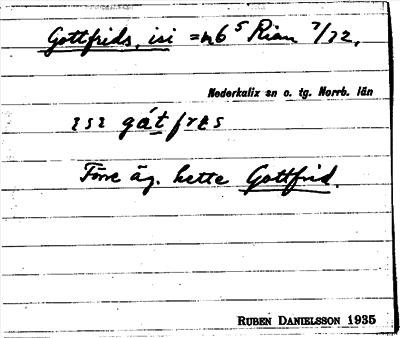 Gottfrids, isi = n6⁵ Rian 7/32.
Nederkalix sn o. tg. Norrb. län
gátfrɛs
Förre äg. hette Gottfrid.
RUBEN DANIELSSON 1935